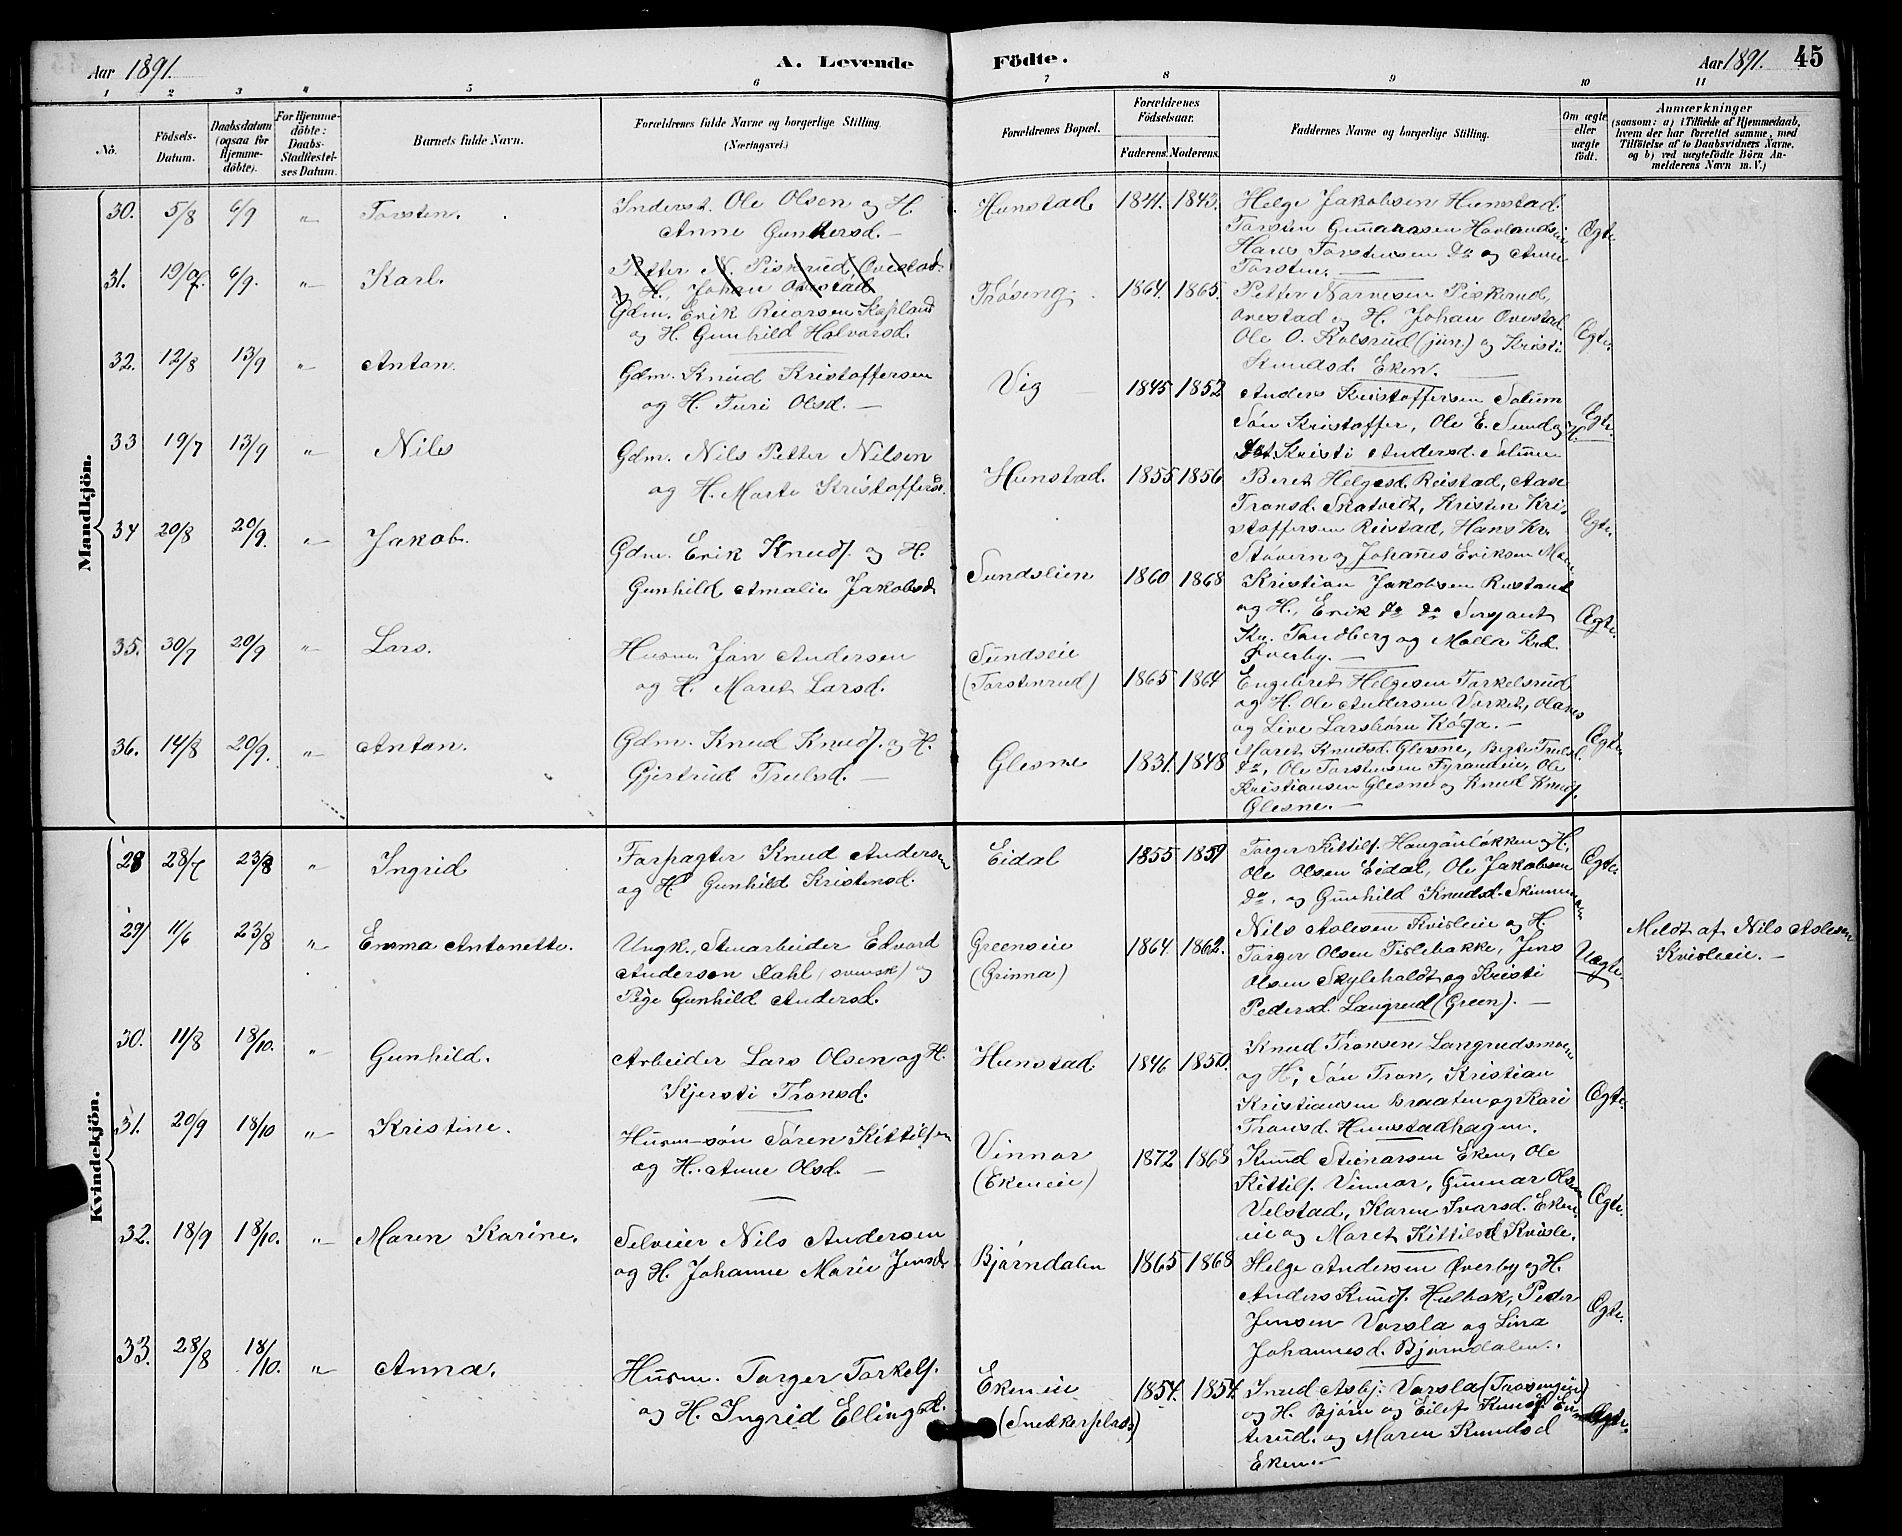 Aar 1891.
A. Levende Födte.
Aar 1891.
45
1 2 3 4 5 6 7 8 9 10 11
No.
Födsels-Datum.
Daabsdatum (ogsaa for Hjemmedöbte).
For Hjemmedöbte: Daabs-Stadfæstelses Datum.
Barnets fulde Navn.
Forældrenes fulde Navne og borgerlige Stilling.
(Næringsvei.)
Forældrenes Bopæl.
Forældrenes Födselsaar.
Faderens. Moderens.
Faddernes Navne og borgerlige Stilling.
Om ægte eller uægte födt.
Anmærkninger
(saasom: a) i Tilfælde af Hjemmedaab, hvem der har forrettet samme, med Tilföielse af to Daabsvidners Navne, og b) ved uægtefödte Börn Anmelderens Navn m. V.)
Mandkjön.
30. 5/8 6/9 " Torsten.
Inderst. Ole Olsen og H.
Anne Gunnersd.
Hunstad 1844. 1843.
Helge Jakobsen Hunstad.
Torsten Gunnarsen Havlandseie
Hans Torstensen do og Anne
Torsten.
Ægte.
31. 19/7. 6/9. " Karl.
Petter N. Piskerud Ovestad.
og H. Johan Ovestad
Gdm. Erik Reiarsen Kopland
og H. Gunhild Halvorsd.
Trøseng. 1864. 1865.
Petter Narvesen Piskerud,
Ovestad og H. Johan Ovestad
Ole O. Kolsrud (jun.) og Kristi
Knudsd. Eken.
Ægte.
32. 12/8 13/9 " Anton.
Gdm. Knud Kristoffersen
og H. Turi Olsd.
Vig 1845 1852
Anders Kristoffersen Solum
Søn Kristoffer, Ole E. Sund og H.
Dat. Kristi Andersd. Solum
Ægte.
33 19/7 13/9 " Nils
Gdm. Nils Petter Nilsen
og H. Marte Kristoffersd.
Hunstad. 1855 1856
Beret Helgesd. Reistad, Aase
Tronsd. Skatvedt, Kristen Kri-
stoffersen Reistad, Hans Kr.
Støvern og Johanes Eriksen Moen
Ægte.
34 20/8 20/9. " Jakob.
Gdm. Erik Knuds. og H.
Gunhild Amalie Jakobsd
Sundslien 1860 1868
Kristian Jakobsen Rustand
og H., Erik do do Serjant
Kr. Tandberg og Malla Krd.
Øverby.
Ægte.
35. 30/7 20/9 " Lars.
Husm. Jan Andersen
og H. Maret Larsd.
Sundseie
(Torstenrud) 1865 1864
Engebret Helgesen Torkelsrud
og H. Ole Andersen Vorket, Olaves
og Live Larsbørn Kóga.
Ægte.
36. 14/8 20/9. " Anton.
Gdm. Knud Knuds. og H.
Gjertrud Trulsd.
Glesne 1831. 1848
Maret Knudsd. Glesne, Berte Trulsd.
do, Ole Torstensen Fyrandeie, Ole
Kristiansen Glesne og Knud Knuds.
Glesne.
Kvindekjön.
28 28/7 23/8 " Ingrid
Forpagter Knud Andersen
og H. Gunhild Kristensd.
Eidal 1855 1859
Torger Kittils. Haugauløkken og H.
Ole Olsen Eidal, Ole Jakobsen
do, og Gunhild Knudsd. Skinnmoen
Ægte.
29 11/6 23/8 " Emma Antonette.
Ungk. Stenarbeider Edvard
Anderson Dahl (svensk) og
Pige Gunhild Andersd.
Greenseie
(Grinna) 1864 1862.
Nils Aslesen Kvisleie og H.
Torger Olsen Tislebakke, Jens
Olsen Skyleholdt og Kristi
Pedersd. Langrud (Green).
Uægte.
Meldt af Nils Aslesen
Kvisleie.
30. 11/8 18/10. " Gunhild.
Arbeider Lars Olsen og H.
Kjersti Tronsd.
Hunstad 1846 1850.
Knud Tronsen Langrudsmoen
og H., Søn Tron, Kristian
Kristiansen Braaten og Kari
Tronsd. Hunstadhagen.
Ægte.
31. 20/9 18/10 " Kristine.
Husm-søn Søren Kittilsen
og H. Anne Olsd.
Vinnor
(Ekeneie) 1872 1868
Knud Steinarsen Eken, Ole
Kittils. Vinnor, Gunnar Olsen
Velstad, Karen Ivarsd. Eken
eie og Maret Kittilsd Kvisle.
Ægte.
32. 18/9 18/10. " Maren Karine.
Selveier Nils Andersen
og H. Johanne Marie Jensd.
Bjørndalen 1865 1868
Helge Andersen Øverby og H.
Anders Knuds. Hulbak, Peder
Jensen Vorsla og Lina
Johannesd. Bjørndalen.
Ægte.
33. 28/8 18/10. " Anna.
Husm. Torger Torkels.
og H. Ingrid Ellingsd.
Ekeneie
(Snekkerplads) 1854. 1854.
Knud Asbj. Vorsla (Trosengeie)
og H. Bjørn og Eilef Knuds.
og Maren Knudsd
Eken.
Ægte.